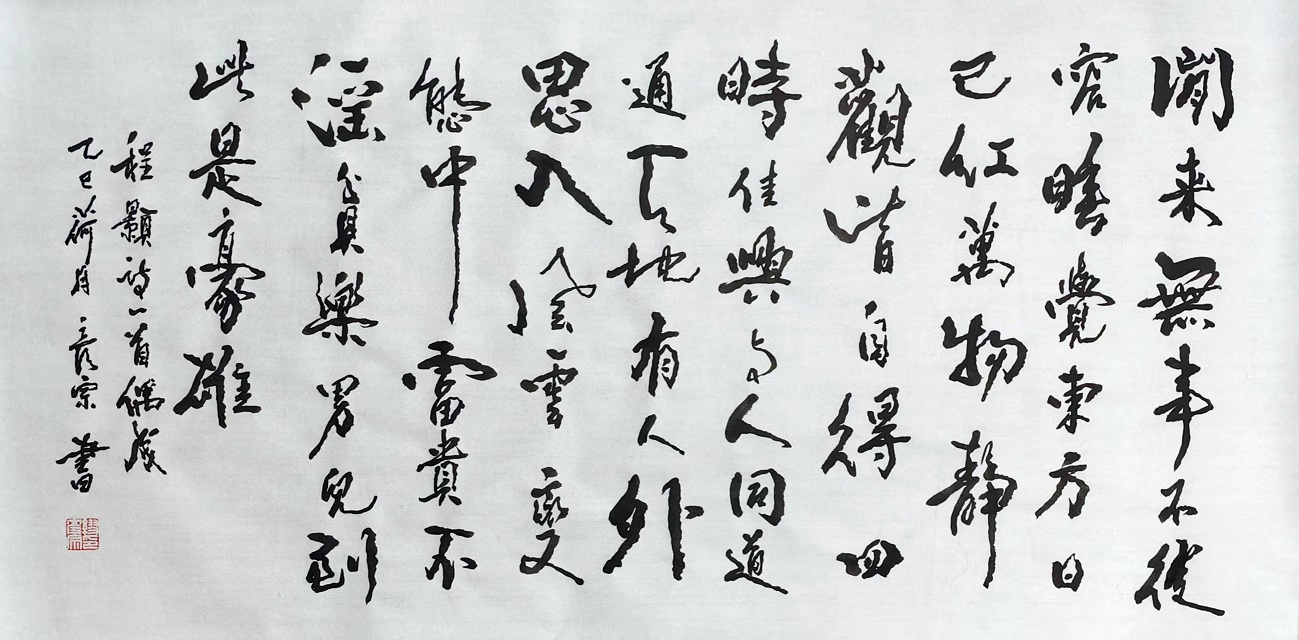 閒来無事不從
容睡覺東方日
已紅萬物靜
觀皆自得四
時佳興与人同道
通天地有人外
思入風雲變
態中富貴不
淫貧樂男兒到
此是豪雄
程顥詩一首偶成
乙巳荷月彦宗書